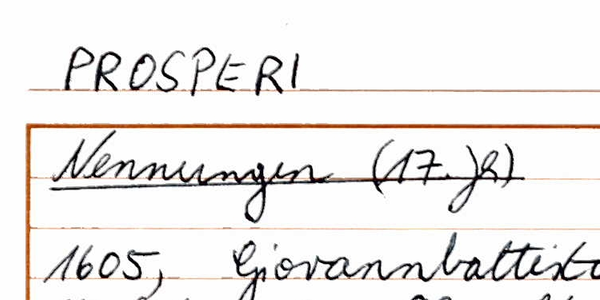 PROSPERI
Nennungen (17. Jh)
1605, Giovannbattista